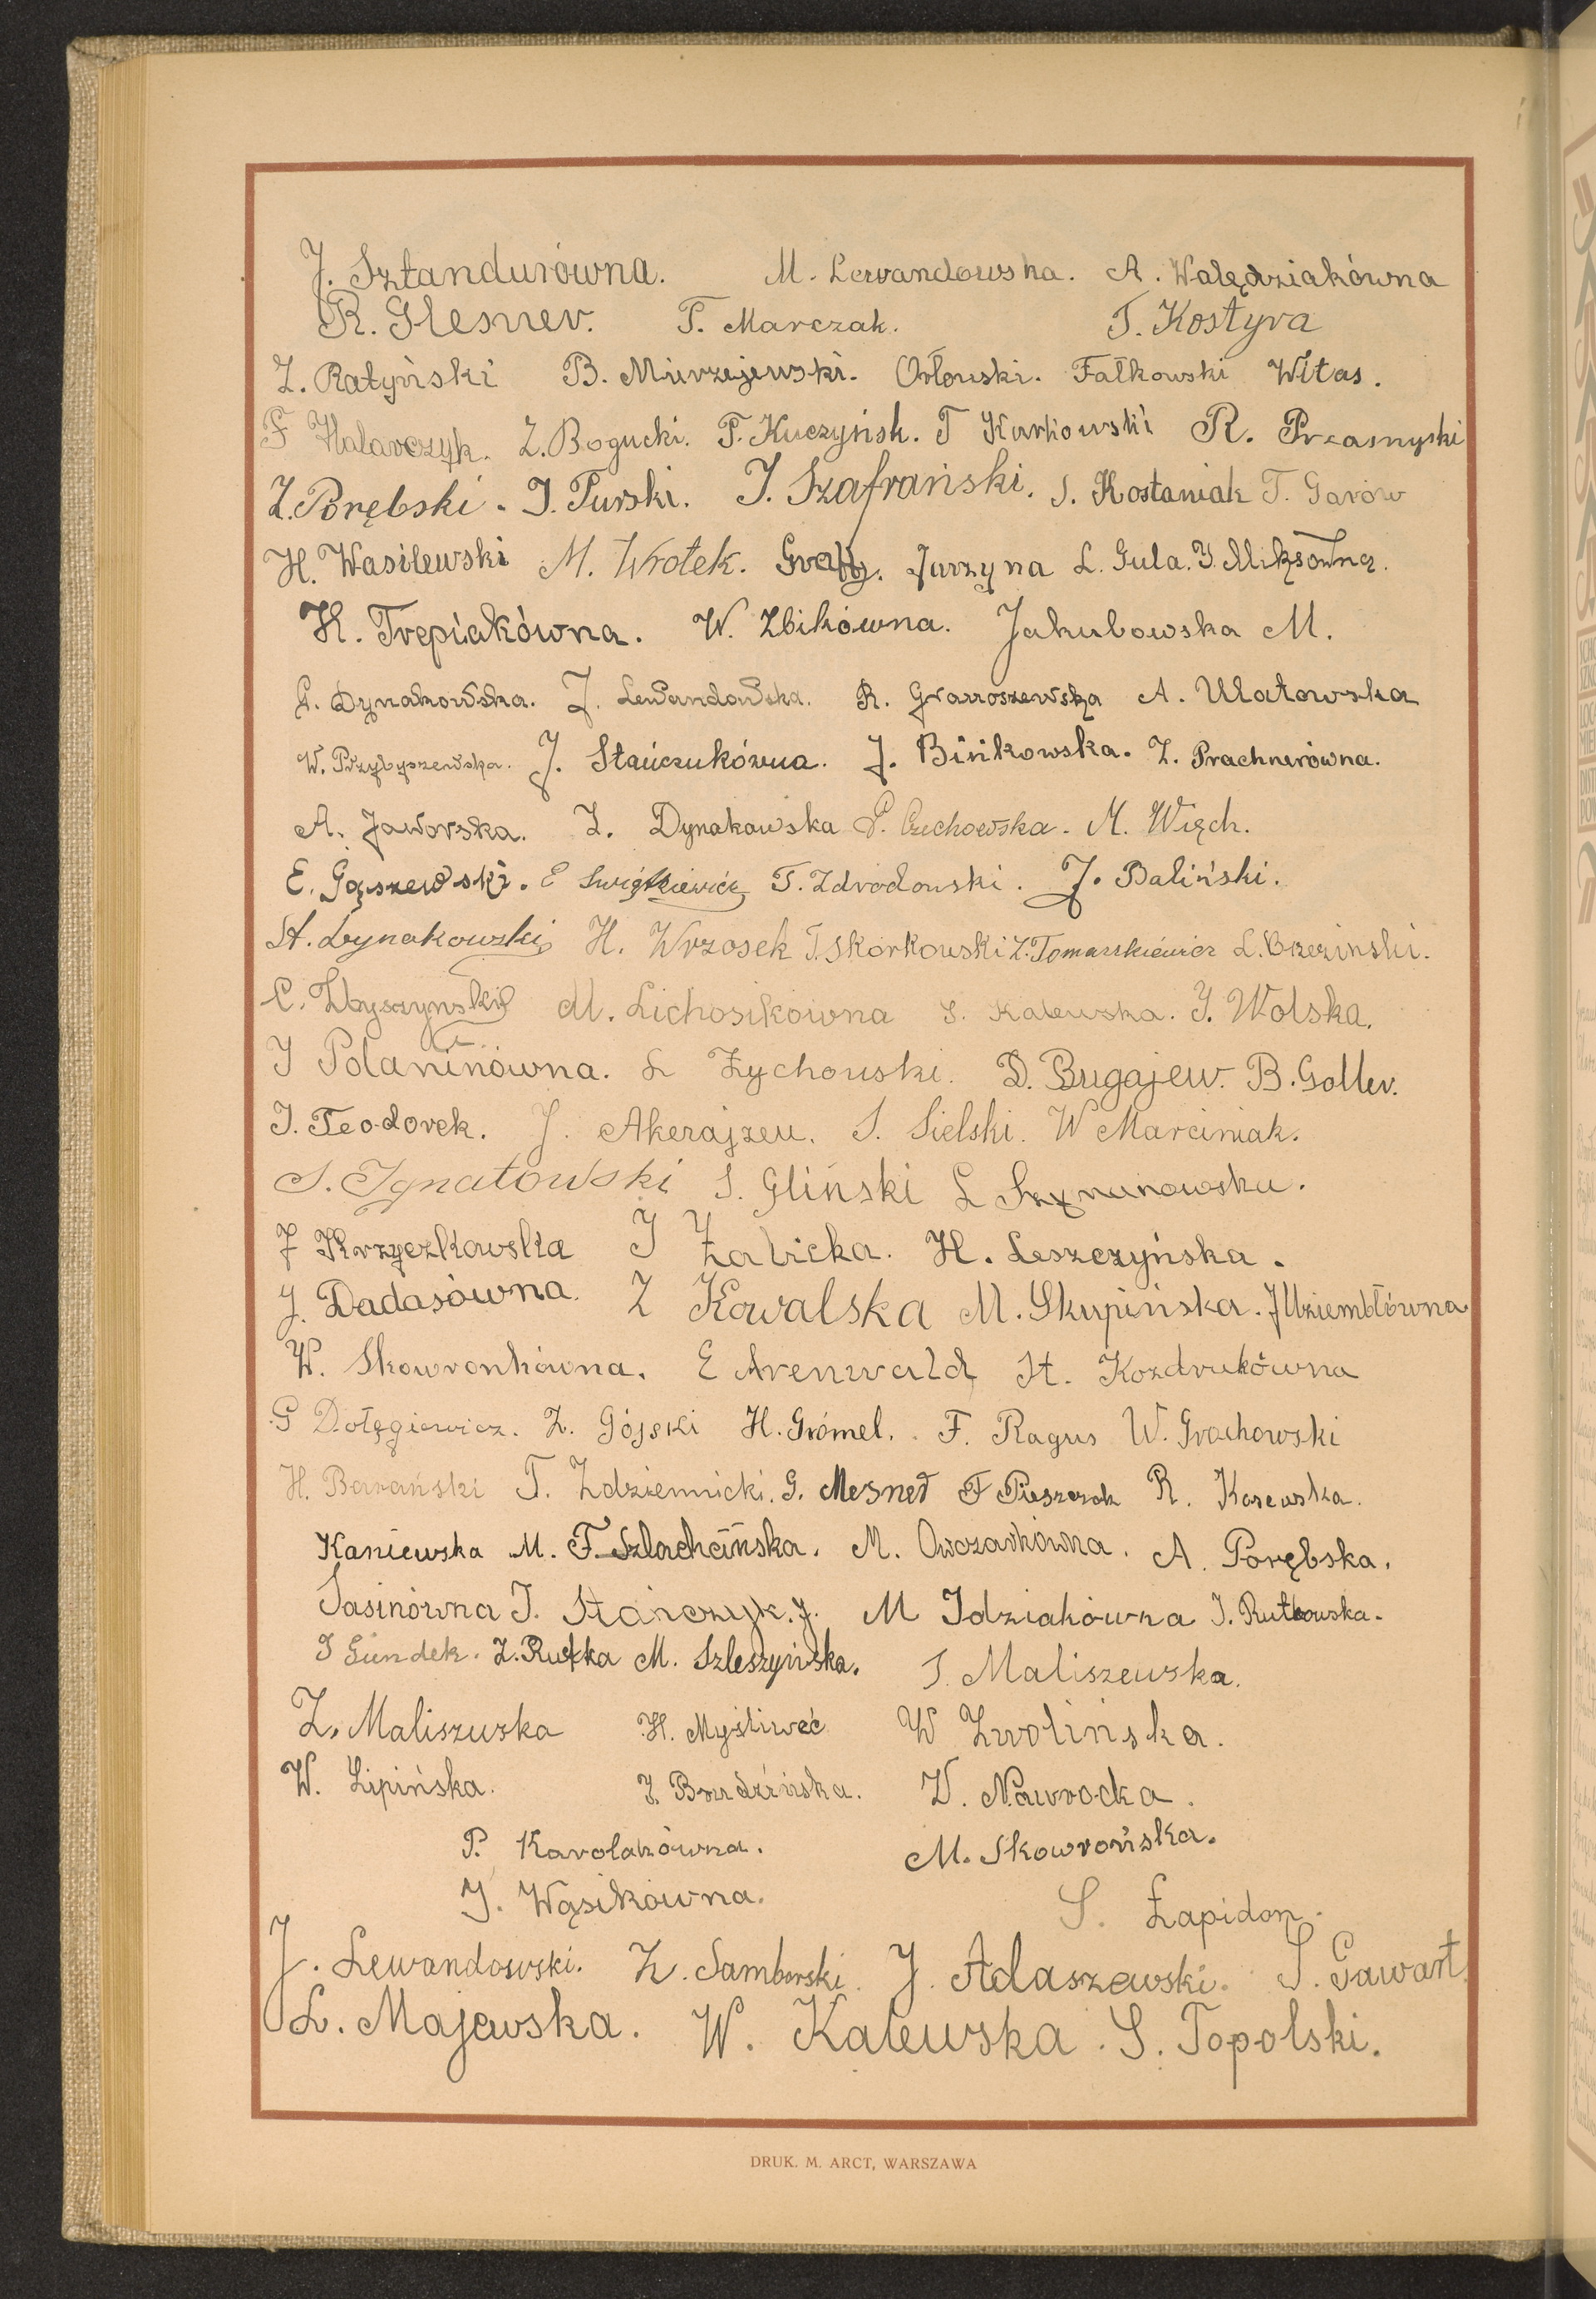 J. Sztandurówna. M. Lewandowska. A. Walędziakówna
R. Glesner. T. Marczak. T. Kostyra
Z. Ratyński B. Mierzejewski. Orłowski. Fałkowski Witas.
F Halarczyk. Z. Bogucki. T. Kuczyńsk. T Karkowski R. Przasnyski
Z. Porębski. J. Turski. J. Szafrański. S. Kostaniak T. Garow
H. Wasilewski M. Wrotek. Jurzyna L. Gula. J. Miksówna.
H. Trepiakówna. W. Zbikówna. Jakubowska M.
G. Dynakowska. J. Lewandowska. R. A. Ulatowska
W. Przybyszewska. J. Stańczukówna. J. Bińkowska. Z. Prachnerówna.
A. Jaworska. Z. Dynakowska P. Cuchowska. M. Więch.
E. Gąszewski. E Swiątkiewicz T. Zdrodowski. J. Baliński.
St. Dynakowski H. Wrzosek T. Skorkowski Z. Tomaszkiewicz L. Brzezinski.
C. Zbyszyński M. Lichosikówna S. Kalewska. J. Wolska.
J Polaninówna. L Żychowski. D. Bugajew. B. Goller.
J. Teodorek. J. Akerajzen. S. Sielski. W Marciniak.
S. Ignatowski S. Gliński L Szymanowska.
J Krzyczkowska J Żalicka. H. Leszczyńska.
J. Dadasówna. Z Kowalska M. Skupińska. J Uziembłówna
W. Skowronkówna. E Arenwald St. Kozdrukówna
G Dołęgiewicz. Z. Gójski H. Grómel. F. Ragus W. Grochowski
H. Barański T. Zdziennicki. G. Mesner F Pieszczak R. Korewska.
Kaniewska M. F. Szlachcińska. M. Owczarkówna. A. Porębska.
Sasinówna J. Stańczyk. J. M Idziakówna J. Rutkowska.
S Gundek. Z. Rutka M. Szleszyńska. S. Maliszewska.
Z. Maliszuska H. Myśliweć W Zwolińska.
W. Lipińska. J. Brudzińska. W. Nawrocka.
P. Karolakówna. M. Skowrońska.
J. Wąsikówna. S. Łapidon.
J. Lewandowski. Z. Samborski. J. Adaszewski. S. Gawart.
L. Majewska. W. Kalewska. S. Topolski.
DRUK. M. ARCT, WARSZAWA